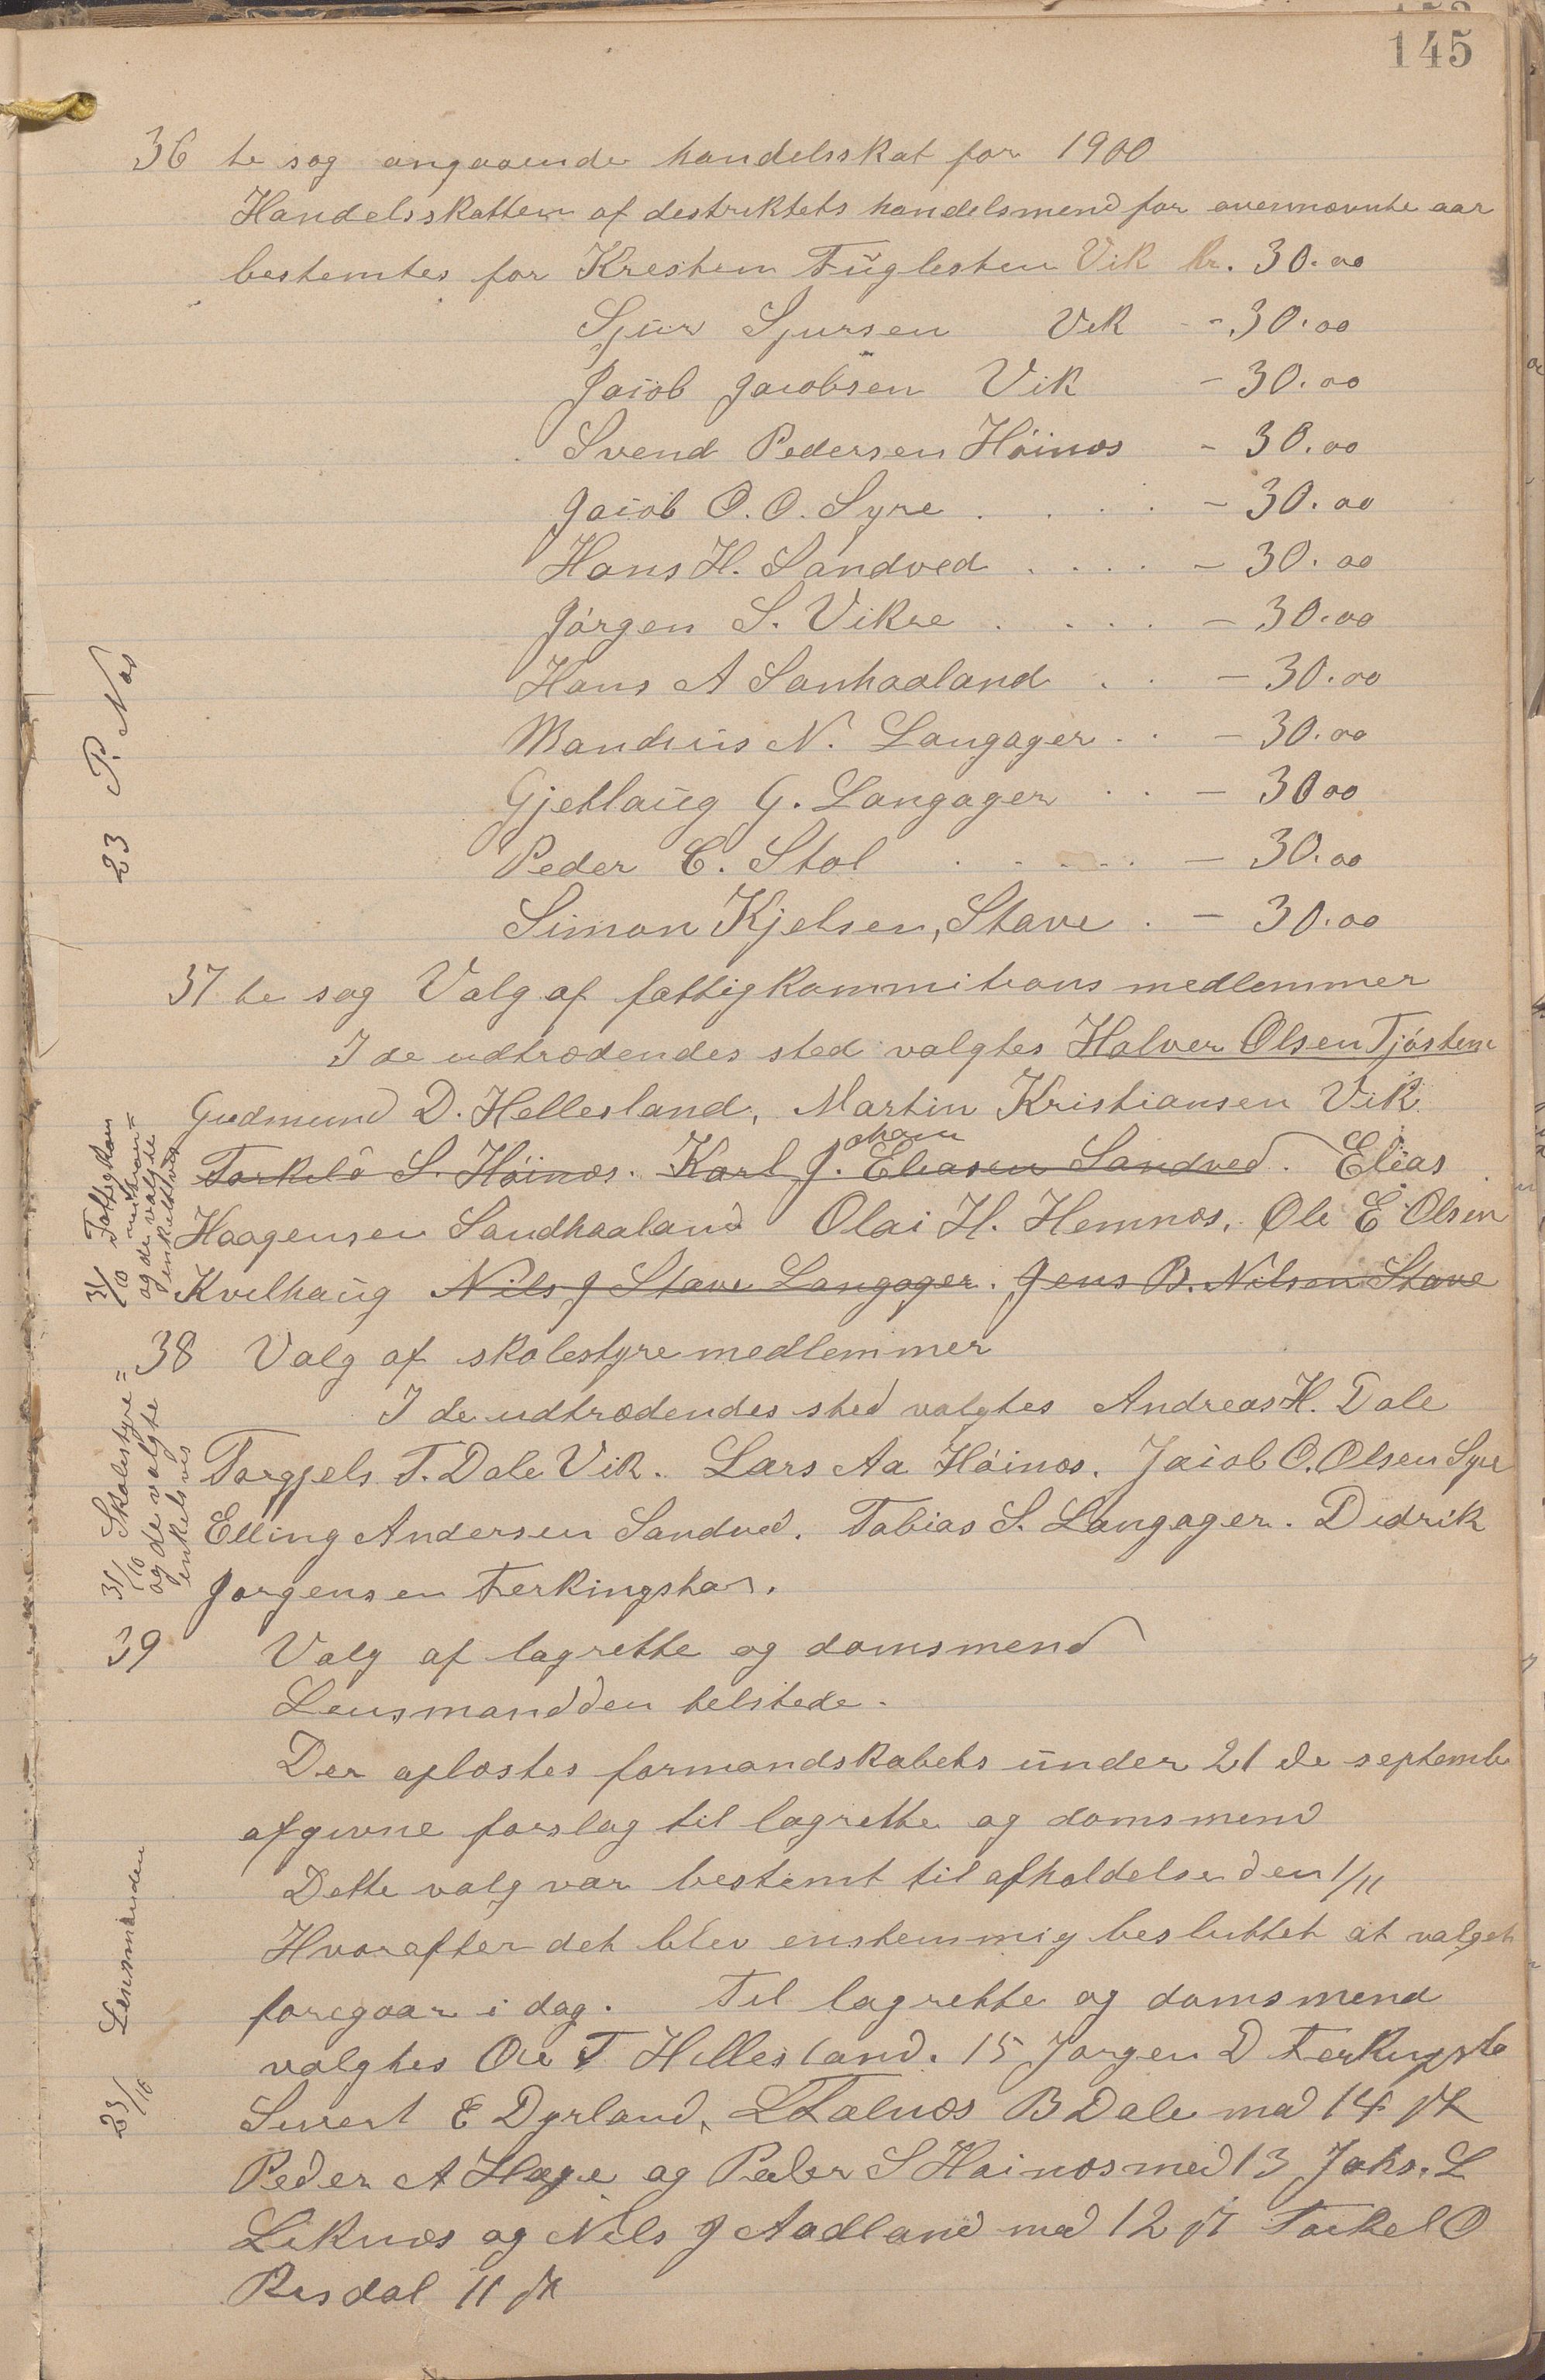 145
36 te sag angaaende handelsskat for 1900
Handelsskatten af destriktets handelsmend for ovennævnte aar
bestemtes for Kresten Fuglesten Vik Kr. 30.00
Sjur Sjursen Vik - 30.00
Jacob Jacobsen Vik - 30.00
Svend Pedersen Höinæs - 30.00
Jacob O. O. Syre . . . . - 30.00
Hans H. Sandved . . . . - 30.00
Jörgen S. Vikre . . . . - 30.00
Hans A Sanhaaland . . - 30.00
Mandrus N. Langager . . - 30.00
Gjetlaug G. Langager . . - 30 00
Peder C. Stol . . . . - 30.00
Simon Kjelsen, Stave . - 30.00
23 P. Næs
37 te sag Valg af fattigkommitions medlemmer
I de udtrædendes sted valgtes Halver Olsen Tjösten
Gudmund D. Hellesland, Martin Kristiansen Vik
Torkild S. Höinæs. Karl Johan Eliasen Sandved. Elias
Haagensen Sandhaaland Olai H. Hemnes, Ole E Olsen
Kvilhaug Nils J Stave Langager. Jens B. Nilsen Stave
31/10 Fattigkom
og de valgte
enkeltvis
38 Valg af skolestyremedlemmer
I de udtrædendes sted valgtes Andreas H. Dale
Torgjels T. Dale Vik. Lars Aa Höinæs. Jacob O. Olsen Syre
Elling Andersen Sandved. Tobias S. Langager. Didrik
Jorgensen Ferkingstad.
31/10 Skolestyre=
og de valgte
enkelvis
39 Valg af lagrette og domsmend
Lensmandden telstede.
Der oplæstes formandskabets under 21 de septembe
afgivne forslag til lagrette og domsmend
Dette valg var bestemt til afholdelse den 1/11
Hvorefter det blev enstemmig besluttet at valget
foregaar i dag. Til lagrette og domsmend
valgtes Ole T Hillesland. 15 Jorgen D Ferkingsta
Sivert E Dyrland, L Falnæs B Dale med 14 st
Peder A Hage og Peder S Höinæs med 13 Johs. L
Liknæs og Nils J Aadland med 12 st Torkel O
Risdal 11 st
23/10 Lensmanden